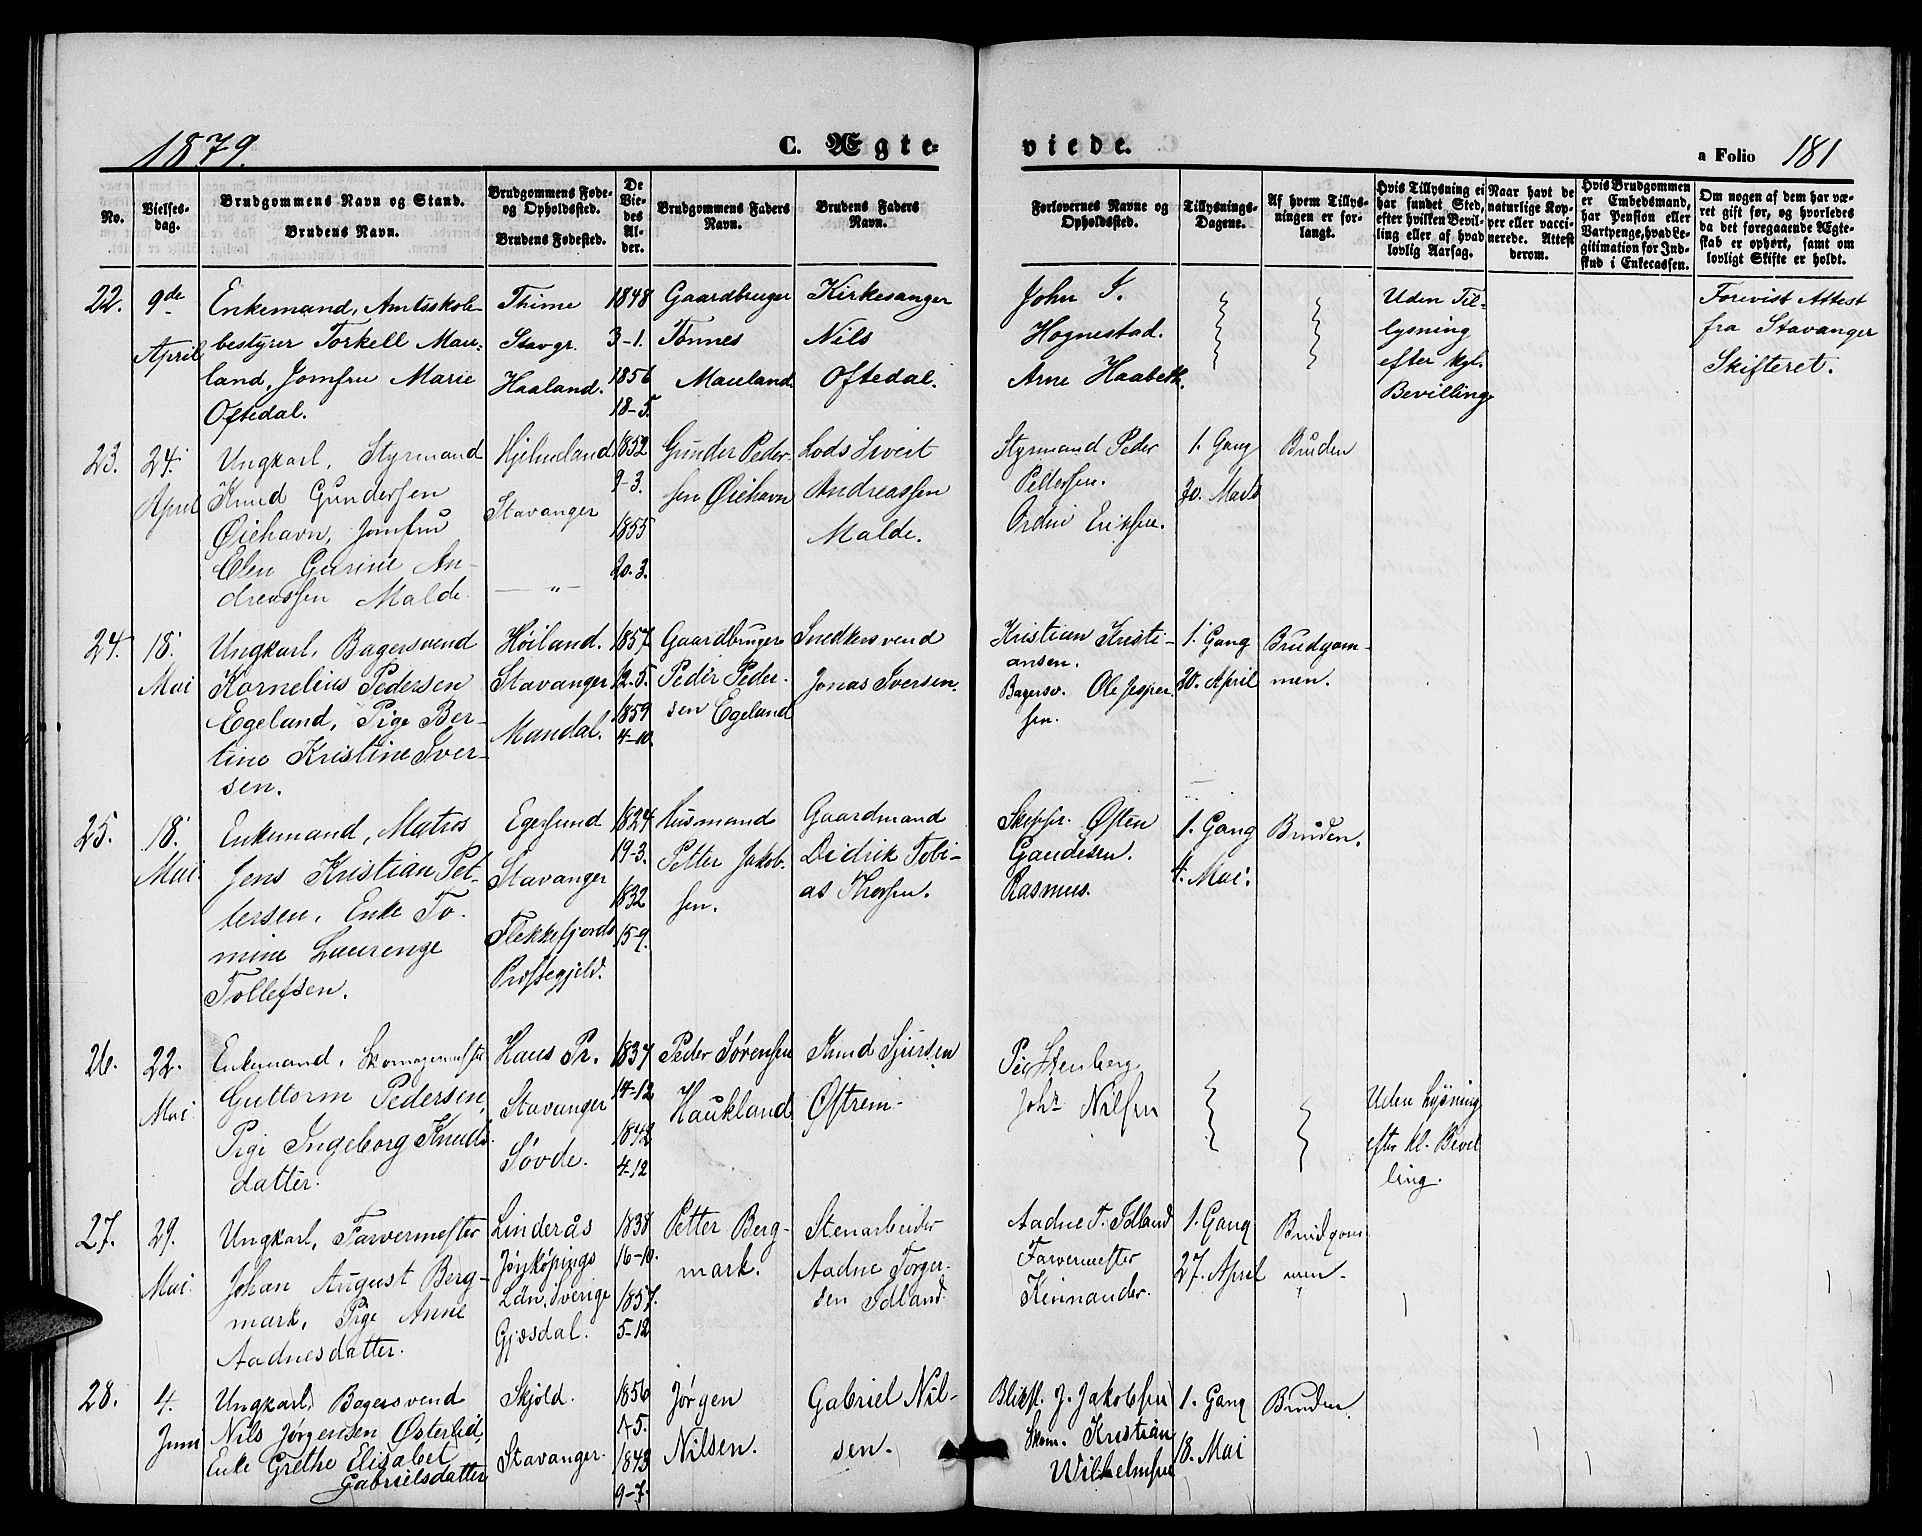 1879.
C. Ægte-
viede.
a Folio 181
No.
Vielses-
dag.
Brudgommens Navn og Stand.
Brudens Navn.
Brudgommens Føde-
og Opholdssted.
Brudens Fødested.
De
Vie-
des
Al-
der.
Brudgommens Faders
Navn.
Brudens Faders
Navn.
Forlovernes Navne og
Opholdssted.
Tillysnings-
Dagene.
Af hvem Tillys-
ningen er for-
langt.
Hvis Tillysning ei
har fundet Sted,
efter hvilken Bevil-
ling eller af hvad
lovlig Aarsag.
Naar havt de
naturlige Kop-
per eller vacci-
nerede. Attest
derom.
Hvis Brudgommen
er Embedsmand,
har Pension eller
Vartpenge, hvad Le-
gitimation for Ind-
skud i Enkecassen.
Om nogen af dem har væ-
ret gift før, og hvorledes
da det foregaaende Ægte-
skab er ophørt, samt om
lovligt Skifte er holdt.
22.
9de
April
Enkemand, Amtsskole-
bestyrer Torkell Mau-
land, Jomfru Marie
Oftedal.
Thime
Stavgr.
Haaland.
1848
3-1.
1856
18-5.
Gaardbruger
Tønnes
Mauland.
Kirkesanger
Nils
Oftedal.
John S.
Hognestad.
Arne Haabeth.
Uden Til-
lysning
efter kgl.
Bevilling.
Forevist Attest
fra Stavanger
Skifteret.
23.
24.
April
Ungkarl, Styrmand
Knud Gundersen
Øiehavn, Jomfru
Elen Gurine An-
dreassen Malde.
Hjelmeland
Stavanger
— „ —
1852
9-3.
1855
20-3.
Gunder Peder-
sen Øiehavn
Lods Sivert
Andreassen
Malde.
Styrmand Peder
Pedersen.
Eriksen.
1. Gang
30. Marts
Bruden
24.
18.
Mai
Ungkarl, Bagersvend
Kornelius Pedersen
Egeland, Pige Ber-
tine Kristine Iver-
sen.
Høiland.
Stavanger
Mandal.
1857
12-5.
1859
4-10.
Gaardbruger
Peder Peder-
sen Egeland
Snedkersvend
Jonas Iversen.
Kristian Kristi-
ansen.
Bagersv. Ole Jesper-
sen.
1. Gang
20. April
Brudgom-
men.
25.
18.
Mai
Enkemand, Matros
Jens Kristian Pet-
tersen, Enke To-
mine Laurenze
Tollefsen.
Egersund
Stavanger
Flekkefjords
Præstegjeld.
1824
19-3.
1832
15-9.
Husmand
Petter Jakob-
sen.
Gaardmand
Didrik Tobi-
as Thorsen.
Skippr. Østen
Gaudesen.
Rasmus.
1. Gang
4. Mai.
Bruden.
26.
22.
Mai
Enkemand, Skomagermester
Guttorm Pedersen,
Pige Ingeborg Knuds-
datter.
Haus Pr.
Stavanger
Søvde.
1837
14-12
1842
4-12
Peder Sørensen
Haukland
Knud Sjursen
Østrem-
Stenberg
Johs. Nilsen
Uden Lysning
efter kl. Bevil
ling.
27.
29.
Mai
Ungkarl, Farvermester
Johan August Berg-
mark, Pige Anne
Aadnesdatter.
Linderås
Jönköpings
Län, Sverige
Gjesdal.
1838
16-10.
1857.
5-12
Petter Berg-
mark.
Stenarbeider
Aadne Torger-
sen Idland.
Aadne T. Idland
Farvermester
Kinnander.
1. Gang
27. April
Brudgom-
men.
28.
4.
Juni
Ungkarl, Bagersvend
Nils Jørgensen Østerlid,
Enke Grethe Elisabet
Gabrielsdatter
Skjold.
Stavanger.
1856
7-5.
1843
9-7.
Jørgen
Nilsen.
Gabriel Nil-
sen.
Bliksl. J. Jakobsen
Skom. Kristian
Wilhelmsen
1. Gang
18. Mai
Bruden.